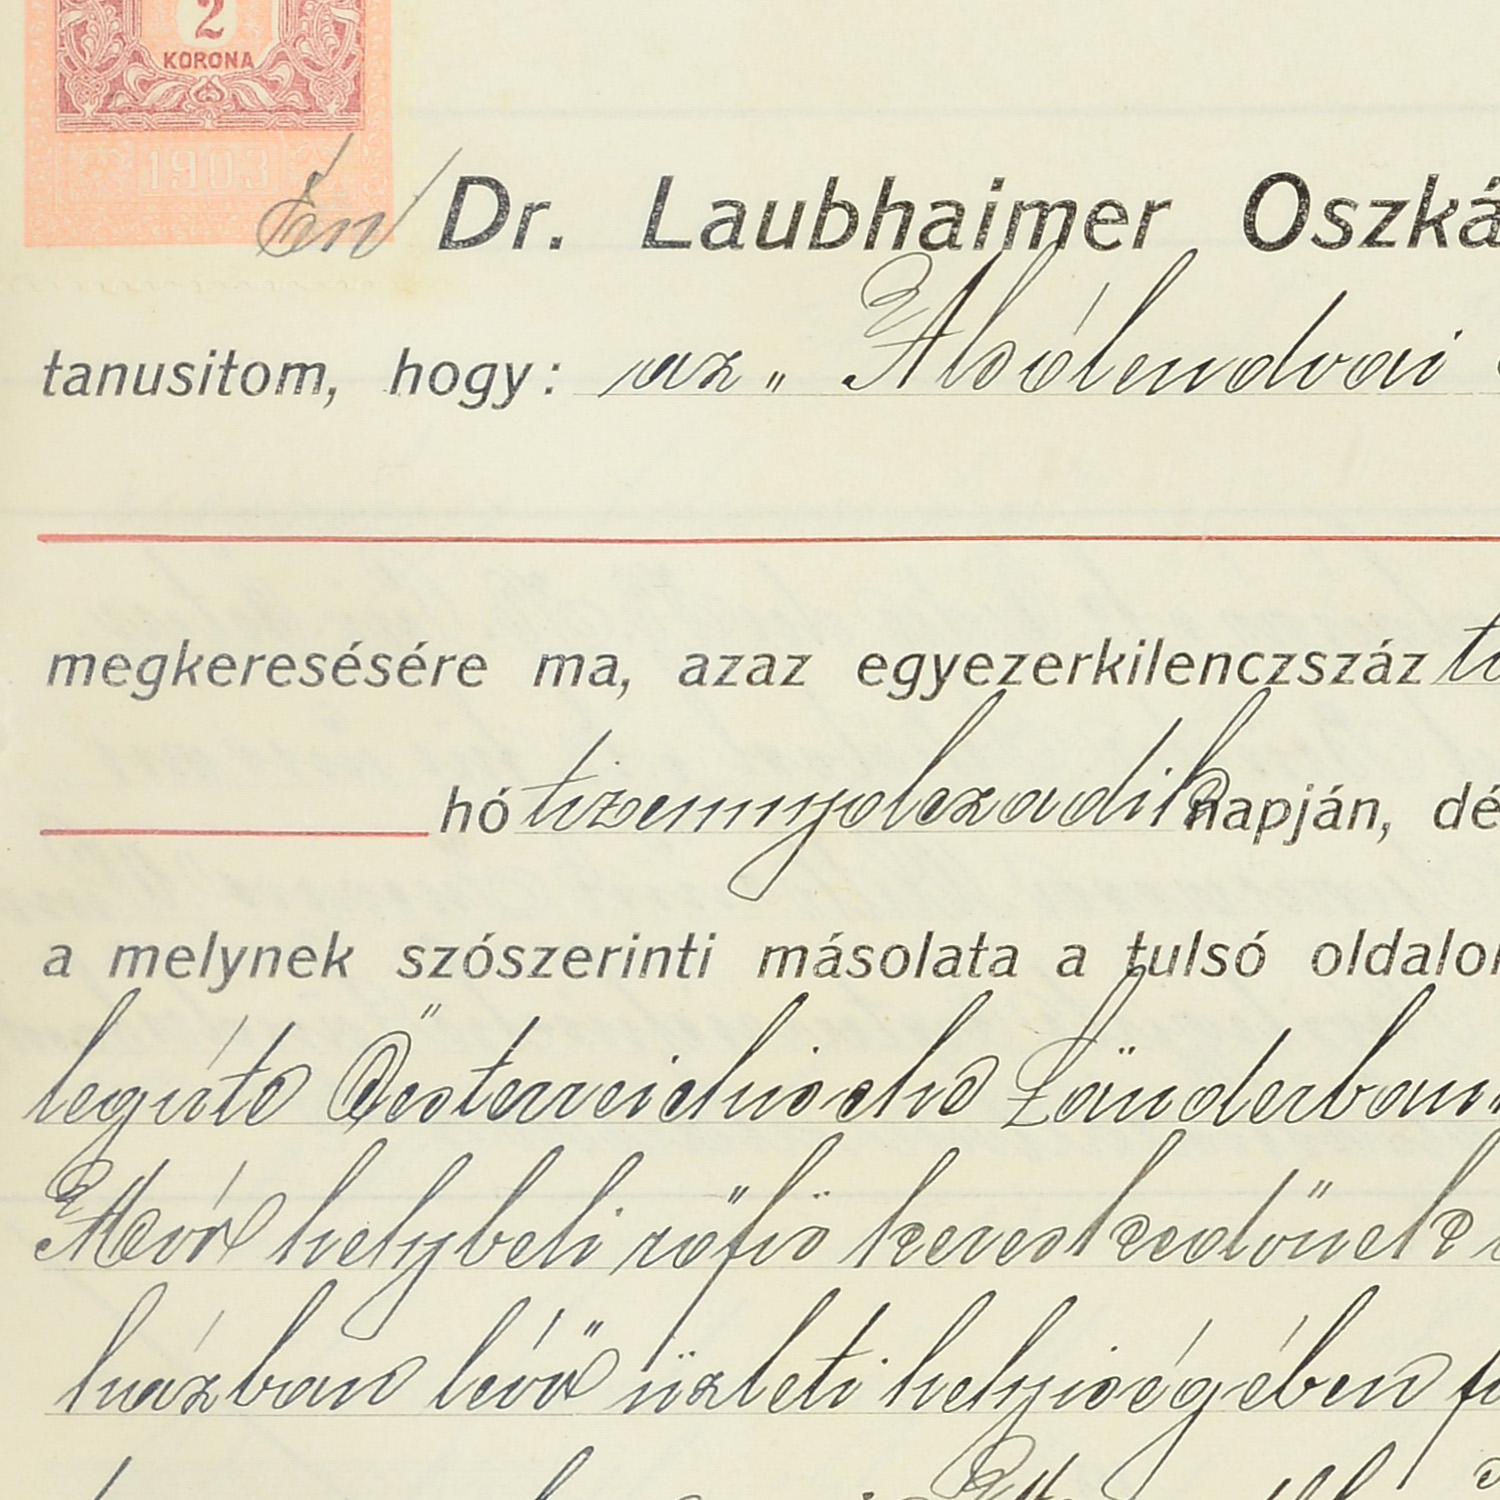 2
KORONA
1903
Én Dr. Laubhaimer Oszká
tanusitom, hogy: az „Alsólendvai
megkeresésére ma, azaz egyezerkilenczszáz
hó tizennyolczadik napján, dé
a melynek szószerinti másolata a tulsó oldalon
legúte Oesterreichische Länderban
Mór helybeli röfös kereskedőnek
házban lévő üzleti helyiségében